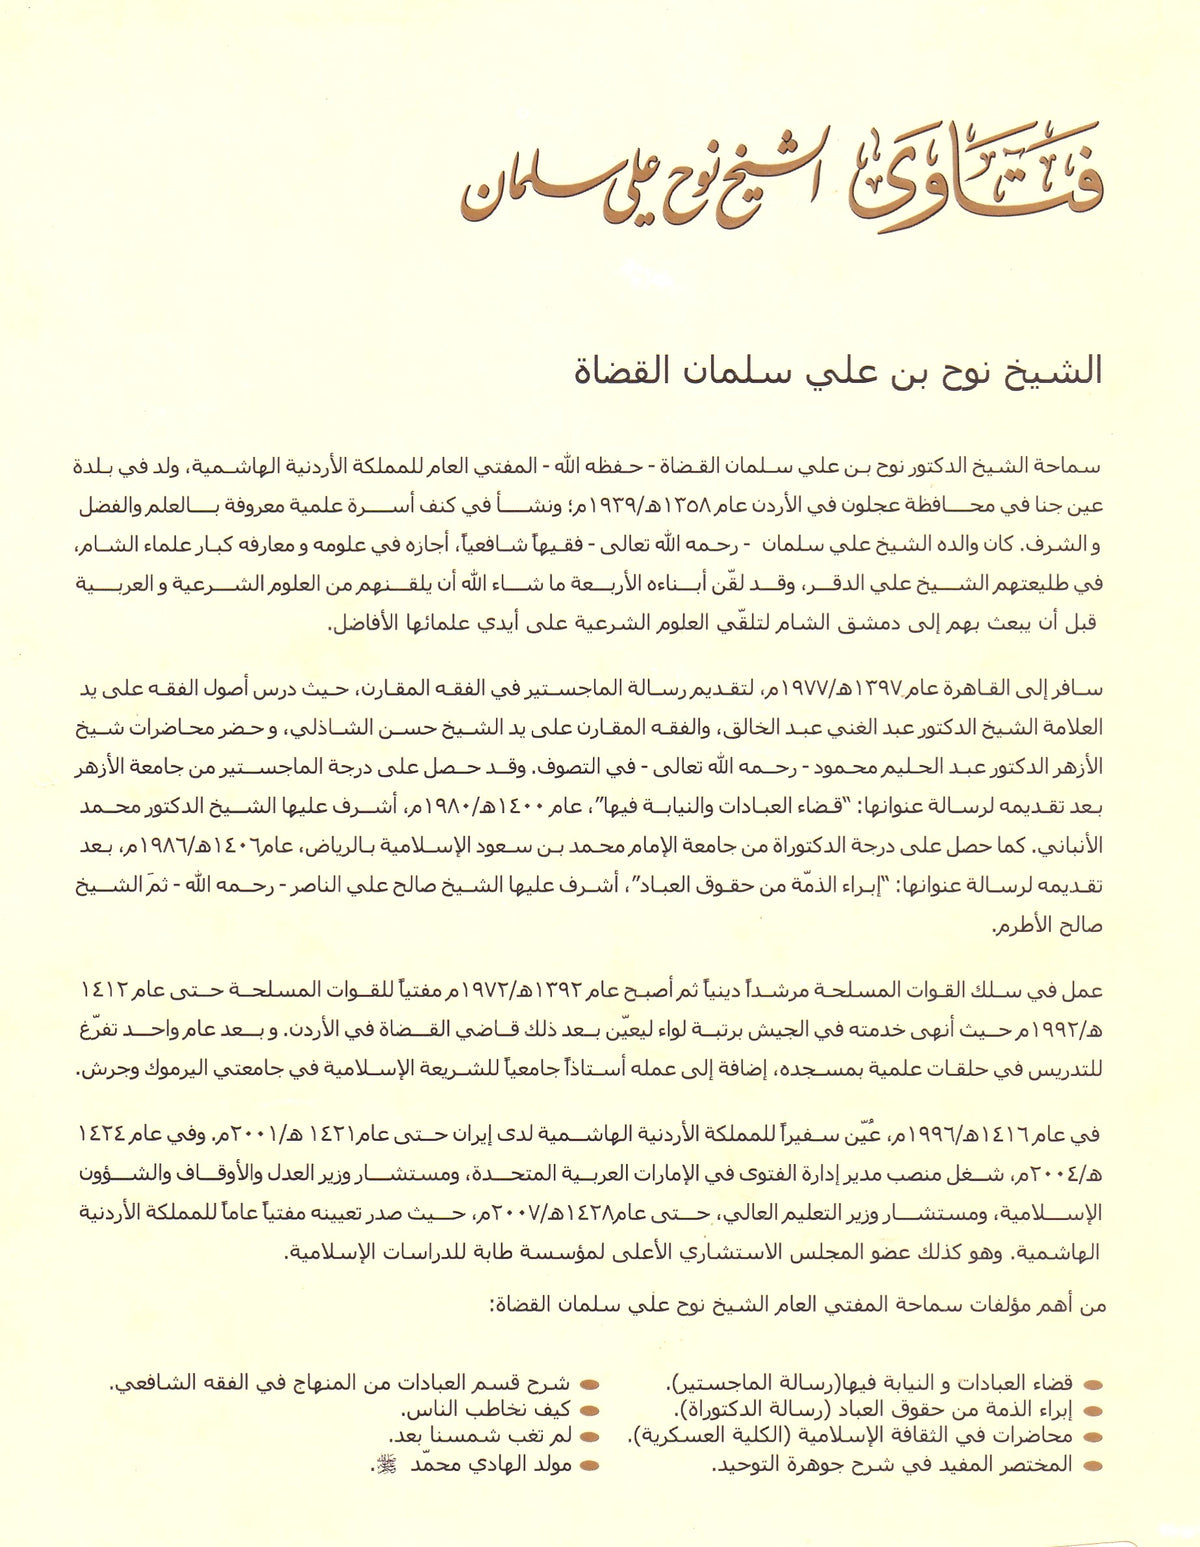 فتاوى الشيخ نوح علي سلمان
الشيخ نوح بن علي سلمان القضاة
سماحة الشيخ الدكتور نوح بن علي سلمان القضاة - حفظه الله - المفتي العام للمملكة الأردنية الهاشمية، ولد في بلدة
عين جنا في محافظة عجلون في الأردن عام ١٣٥٨هـ/١٩٣٩م؛ ونشأ في كنف أسرة علمية معروفة بالعلم والفضل
و الشرف. كان والده الشيخ علي سلمان - رحمه الله تعالى - فقيهاً شافعياً، أجازه في علومه و معارفه كبار علماء الشام،
في طليعتهم الشيخ علي الدقر، وقد لقّن أبناءه الأربعة ما شاء الله أن يلقنهم من العلوم الشرعية و العربية
قبل أن يبعث بهم إلى دمشق الشام لتلقّي العلوم الشرعية على أيدي علمائها الأفاضل.
سافر إلى القاهرة عام ١٣٩٧هـ/١٩٧٧م، لتقديم رسالة الماجستير في الفقه المقارن، حيث درس أصول الفقه على يد
العلامة الشيخ الدكتور عبد الغني عبد الخالق، والفقه المقارن على يد الشيخ حسن الشاذلي، و حضر محاضرات شيخ
الأزهر الدكتور عبد الحليم محمود - رحمه الله تعالى - في التصوف. وقد حصل على درجة الماجستير من جامعة الأزهر
بعد تقديمه لرسالة عنوانها: “قضاء العبادات والنيابة فيها”، عام ١٤٠٠هـ/١٩٨٠م، أشرف عليها الشيخ الدكتور محمد
الأنباني. كما حصل على درجة الدكتوراة من جامعة الإمام محمد بن سعود الإسلامية بالرياض، عام١٤٠٦هـ/١٩٨٦م، بعد
تقديمه لرسالة عنوانها: “إبراء الذمّة من حقوق العباد”، أشرف عليها الشيخ صالح علي الناصر - رحمه الله - ثمَ الشيخ
صالح الأطرم.
عمل في سلك القوات المسلحة مرشداً دينياً ثم أصبح عام ١٣٩٢هـ/١٩٧٢م مفتياً للقوات المسلحة حتى عام ١٤١٢
هـ/١٩٩٢م حيث أنهى خدمته في الجيش برتبة لواء ليعيّن بعد ذلك قاضي القضاة في الأردن. و بعد عام واحد تفرّغ
للتدريس في حلقات علمية بمسجده، إضافة إلى عمله أستاذاً جامعياً للشريعة الإسلامية في جامعتي اليرموك وجرش.
في عام ١٤١٦هـ/١٩٩٦م، عُيّن سفيراً للمملكة الأردنية الهاشمية لدى إيران حتى عام١٤٢١ هـ/٢٠٠١م. وفي عام ١٤٢٤
هـ/٢٠٠٤م، شغل منصب مدير إدارة الفتوى في الإمارات العربية المتحدة، ومستشار وزير العدل والأوقاف والشؤون
الإسلامية، ومستشار وزير التعليم العالي، حتى عام١٤٢٨هـ/٢٠٠٧م، حيث صدر تعيينه مفتياً عاماً للمملكة الأردنية
الهاشمية. وهو كذلك عضو المجلس الاستشاري الأعلى لمؤسسة طابة للدراسات الإسلامية.
من أهم مؤلفات سماحة المفتي العام الشيخ نوح علي سلمان القضاة:
قضاء العبادات و النيابة فيها(رسالة الماجستير).
إبراء الذمة من حقوق العباد (رسالة الدكتوراة).
محاضرات في الثقافة الإسلامية (الكلية العسكرية).
المختصر المفيد في شرح جوهرة التوحيد.
شرح قسم العبادات من المنهاج في الفقه الشافعي.
كيف نخاطب الناس.
لم تغب شمسنا بعد.
مولد الهادي محمّد ﷺ.